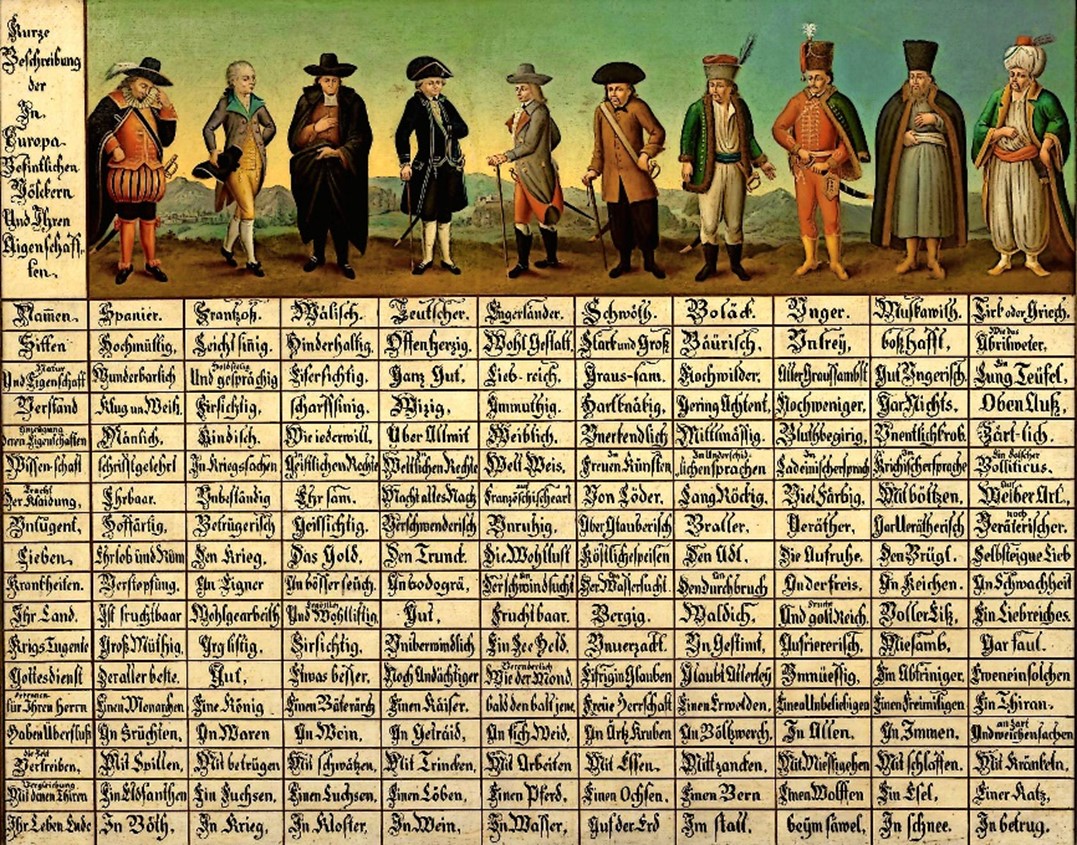 Kurze
Beschreibung
der
In
Europa
Befintlichen
Völckern
Und Ihren
Aigenschaff,
ten.
Namen. Spanier. Frantzoß. Wälisch. Teutscher. Engerländer. Schwöth. Boläck. Unger. Muskawith. Tirk oder Griech.
Sitten Hochmüttig, Leichtsinig. Hinderhaltig. Offenherzig. Wohl Gestalt, Stark und Groß Bäurisch. Untrey, boßhafft, Wie das Abrilweter,
Natur Und Eigenschaft Wunderbarlich Holdseelig Und gesprächig Eifersichtig. Ganz Gut, Lieb-reich. Graus-sam. Nochwilder. Aller Graussambst Gut Ungerisch. Ein Lung Teüfel,
Verstand Klug un Weiß. Firsichtig, scharffsinig. Wizig, Ammuthig. Hartknäbig, Gering Achtent, Nochweniger, Gar Nichts. Oben Auß,
Anzeügung deren Eigenschaften Mänlich. Kindisch. Wie iederwill. Über Allmit Weiblich. Unerkendlich Mittlmässig. Bluthbegirig, Unentlichkrob. Zärt-lich.
Wissenschaft schriftgelehrt In Kriegssachen Geistlichen Rechte Weltlichen Rechte Welt Weis. In Freuen Künsten lichensprachen In Ladeinischersprach In Krichischersprache Ein Falscher Bolliticus.
Tracht Der Klaidung, Ehrbaar. Unbeständig Ehrsam. Macht alles Nach auf Französchischeart Von Löder. Lang Röckig. Viel Färbig, Mit böltzen, Auf Weiber Art,
Untugent, Hoffärtig, Betrügerisch Geilsichtig. Verschwenderisch Unruhig. Über Glauberisch Braller. Veräther. Gar Verätherisch noch Veräterischer.
Lieben. Ehrlob und Rüm Den Krieg. Das Gold. Den Trunck. Die Wohllust Köstlichespeisen Den Adl. Die Aufruhe. Den Brügl. Selbsteigne Lieb
Krankheiten. Verstopfung. An Eigner An bösser seüch. An bodogrä, Der schwindsucht Der Wassersucht. Den Durchbruch An der freis. An Keichen. An Schwachheit
Ihr Land. Ist fruchtbaar Wohlgearbeith Und Wohllistig Gut, Fruchtbaar. Bergig. Waldich. Und goltReich. Voller Eiß, Ein Liebreiches.
Krigs Tugente Groß Müthig, Arg listig. Firsichtig. Uniberwindlich Ein See Held. Unverzackt. Un Gestimt, Aufriererisch. Miesamb, Gar faul.
Gottesdienst Der aller beste. Gut, Etwas besser, Noch Andächtiger Wie der Mond. Eifrig in Glauben Glaubt Allerley Unmüessig, Ein Abtriniger. Eweneinsolchen
für Ihren Herrn Einen Monarchen Eine König. Einen Bäterärch Einen Käiser. bald den bald jene. Freüe Herrschaft Einen Erwölden. Einen Unbeliebigen Einen freimilligen Ein Thiran.
Haben Überfluß An Früchten, An Waren An Wein, An Getraid, An fich Weid, An Ärtz Kruben An Böltzwerch, In Allen. An Immen, an Zart Und weichen sachen
die Zeit Vertreiben, Mit Spillen, Mit betrügen Mit schwätzen, Mit Trincken, Mit Arbeiten Mit Essen. Mit zancken. Mit Miessigehen Mit schlaffen. Mit Kränkeln,
Vergleichung Mit denen Thiren Ein Elofanthen Ein Fuchsen, Einen Luchsen, Einen Löben, Einen Pferd, Einen Ochsen, Einen Bern Einen Wolffen Ein Esel, Einer Katz,
Ihr Leben Ende In Böth, In Krieg, In Kloster, In Wein, In Wasser, Auf der Erd Im stall, beÿm säwel, In schnee. In betrug.